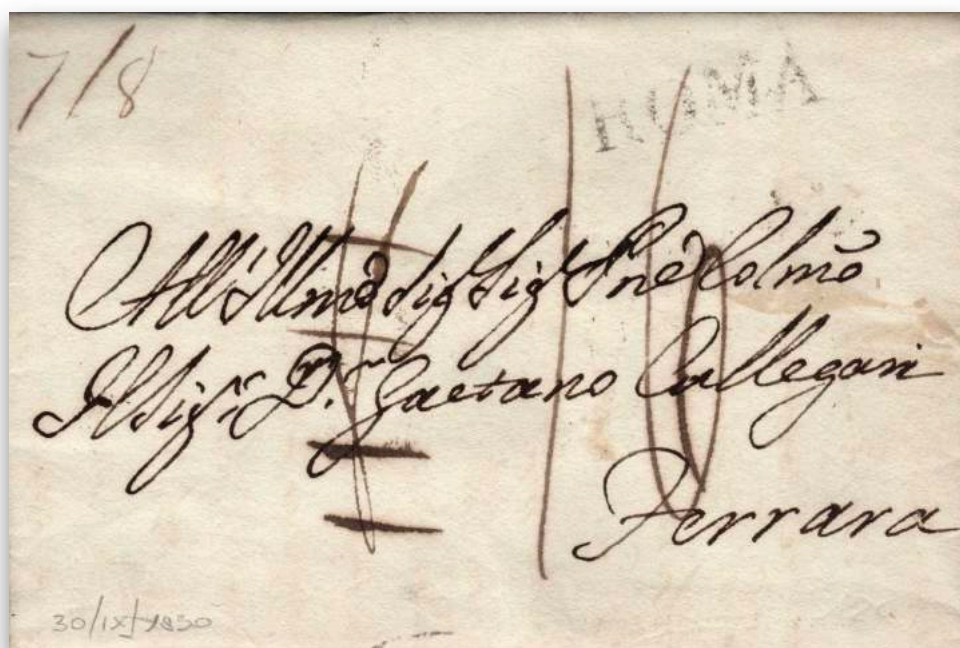 7/8
ROMA
All'Illmõ Sig Sig Pnẽ Colmõ
Il Sigr. Dr. Gaetano Callegari
16
Ferrara
30/IX/1830